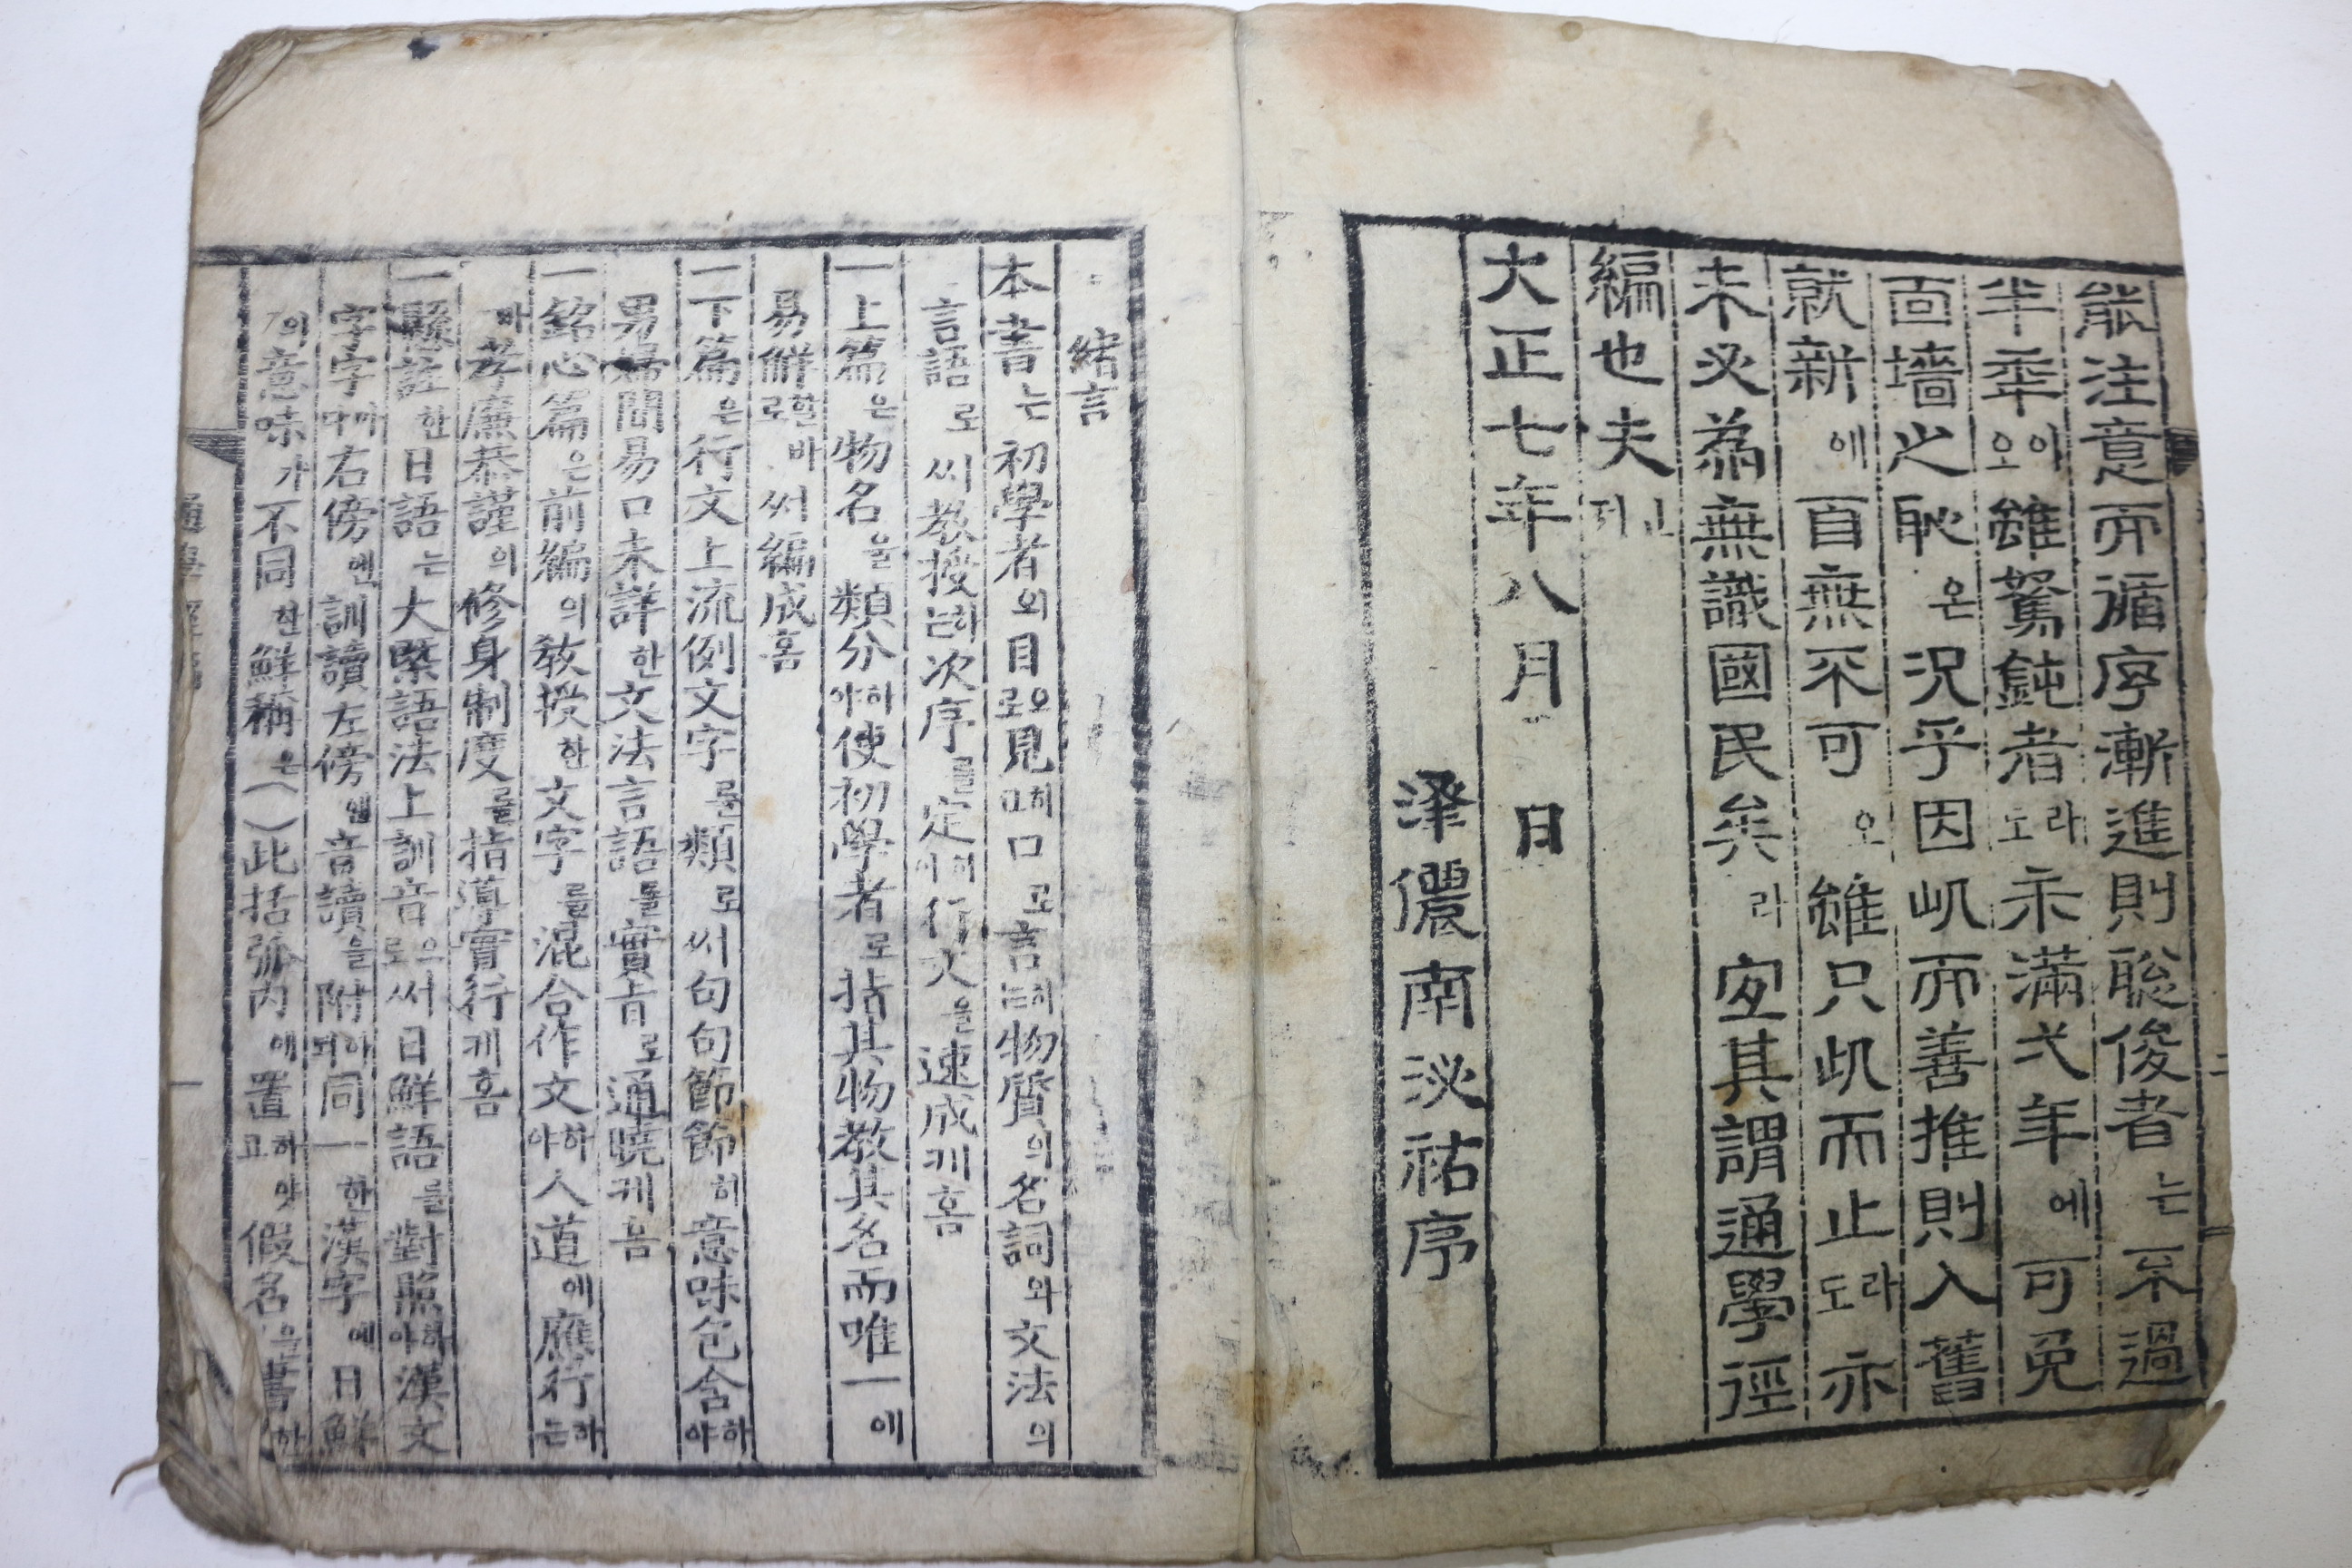 能注意而循序漸進則聡俊者는不過
半年이오雖駑鈍者라도未滿弌年에可免
面墻之恥온况乎因此而善推則入舊
就新에自無不可오雖只此而止라도亦
未必爲無識國民矣라宐其謂通學徑
編也夫ㄴ저
大正七年八月 日
澤儂南泌祐序
緖言
本書는初學者의目으로見히며口로言히는物質의名詞와文法의
言語로써敎授하는次序를定하여行文을速成케홈
一上篇은物名을類分하야使初學者로指其物敎其名而唯一에
易解할바로써編成홈
一下篇은行文上流例文字를類로써句句節節히意味包含하야
男婦間易口未詳한文法言語를實旨로通曉케홈
一銘心篇은前編의敎授한文字를混合作文하야人道에應行하는
바孝廉恭謹의修身制度를指導實行케홈
一懸註한日語는大槩語法上訓音으로써日鮮語를對照하야漢文
字字마다右傍엔訓讀左傍엔音讀을附하되同一한漢字에日鮮
의意味가不同한鮮稱은( )此括弧內에置하고얏假名을書한